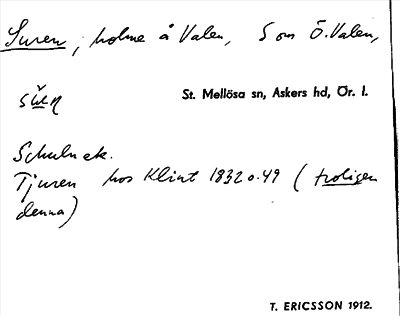 Suren, holme å Valen, S om Ö. Valen,
St. Mellösa sn, Askers hd, Ör. l.
Schulnek.
Tjuren hos Klint 1832 o. 49 (troligen
denna)
T. ERICSSON 1912.